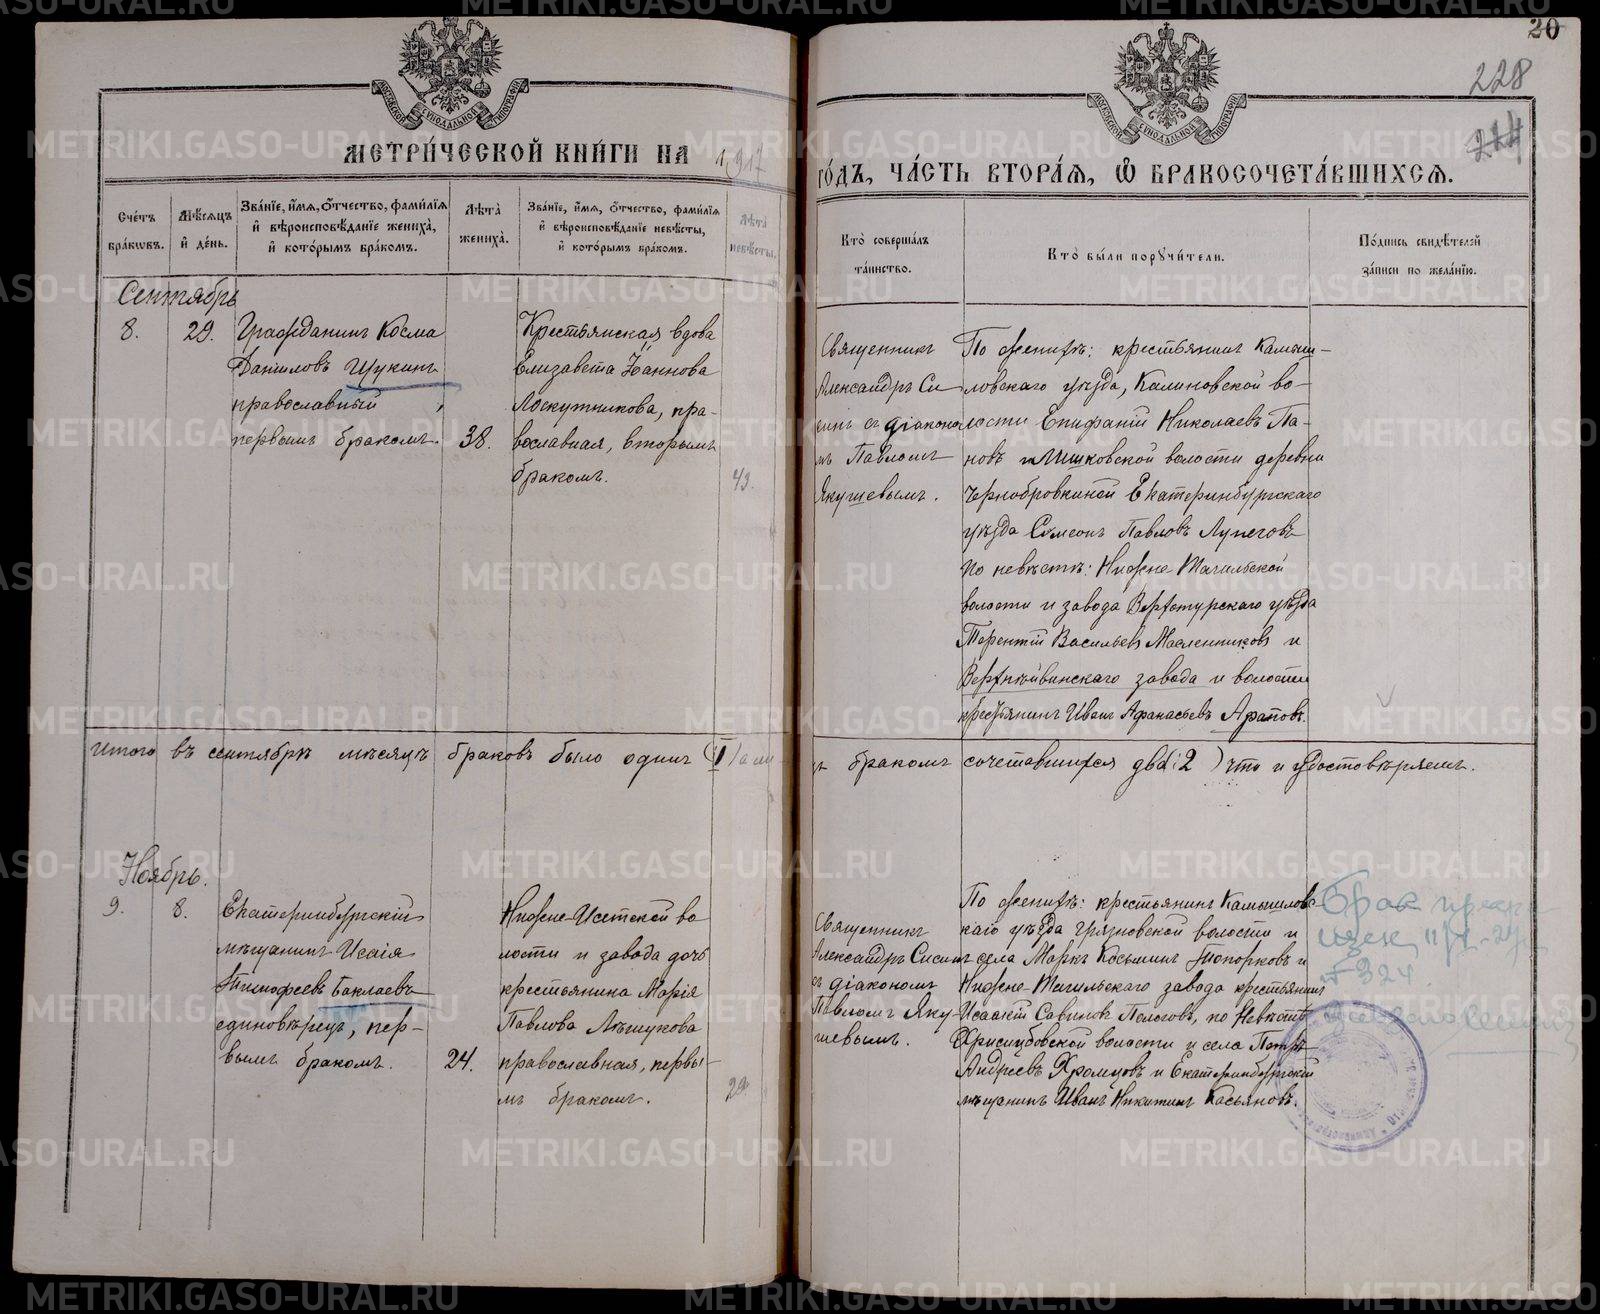 20
228
224
МОСКОВСКОЙ СУНОДАЛЬНОЙ ТИПОГРАФІИ
МОСКОВСКОЙ СУНОДАЛЬНОЙ ТИПОГРАФІИ
МЕТРИ́ЧЕСКОЙ КНИ́ГИ НА 1917
ГО́ДЪ, ЧА́СТЬ ВТОРА́Я, Ѡ БРАКОСОЧЕТА́ВШИХСЯ.
Сче́тъ бра́кѡвъ.
Мѣ́сяцъ и̓ де́нь.
Зва́нїе, и҆́мя, ѻ҆́тчество, фами́лїя и̓ вѣроисповѣ́данїе жениха̀, и̓ кото́рымъ бра́комъ.
Лѣ́та жениха̀.
Зва́нїе, и҆́мя, ѻ҆́тчество, фами́лїя и̓ вѣроисповѣ́данїе невѣ́сты, и̓ кото́рымъ бра́комъ.
Лѣ́та невѣ́сты.
Кто̀ соверша́лъ та́инство.
Кто̀ бы́ли порꙋчи́тели.
По́дпись свидѣ́телей за́писи по жела́нїю.
Сентябрь
8.
29.
Гражданинъ Косма
Даниловъ Щукинъ
православный,
первымъ бракомъ.
38.
Крестьянская вдова
Елизавета Іоаннова
Лоскутникова, пра-
вославная, вторымъ
бракомъ.
43.
Священникъ
Александръ Си
синъ съ діаконо
мъ Павломъ
Якушевымъ.
По женихѣ: крестьянинъ Камыш-
ловскаго уѣзда, Калиновской во-
лости Епифаній Николаевъ Па-
новъ и
волости деревни
Чернобровкиной Екатеринбургскаго
уѣзда Симеонъ Павловъ Лупеговъ
По невѣстѣ: Нижне-Тагильской
волости и завода Верхотурскаго уѣзда
Терентій Васильевъ Масленниковъ и
Верхнейвинскаго завода и волости
крестьянинъ Иванъ Афанасьевъ Араповъ.
Итого въ сентябрѣ мѣсяцѣ браковъ было одинъ (1)
бракомъ сочетавшихся два (2) что и удостовѣряемъ.
Ноябрь.
9.
8.
Екатеринбургскій
мѣщанинъ Исаія
Тимофеевъ Баклаевъ
единовѣрецъ, пер-
вымъ бракомъ.
24.
Нижне-Исетской во
лости и завода дочь
крестьянина Марія
Павлова Лѣщукова
православная, первы-
мъ бракомъ.
29.
Священникъ
Александръ Сисинъ
съ діакономъ
Павломъ Яку
шевымъ.
По женихѣ: крестьянинъ Камышлов-
скаго уѣзда Грязновской волости и
села Маркъ Космин Топорковъ и
Нижне-Тагильскаго завода крестьянинъ
Исаакій Савиновъ Пологовъ, по невѣстѣ:
волости и села Петръ
Андреевъ Хромцовъ и Екатеринбургскій
мѣщанинъ Иванъ Никитинъ Касьяновъ.
Брак прекра
щен
№ 324
METRIKI.GASO-URAL.RU